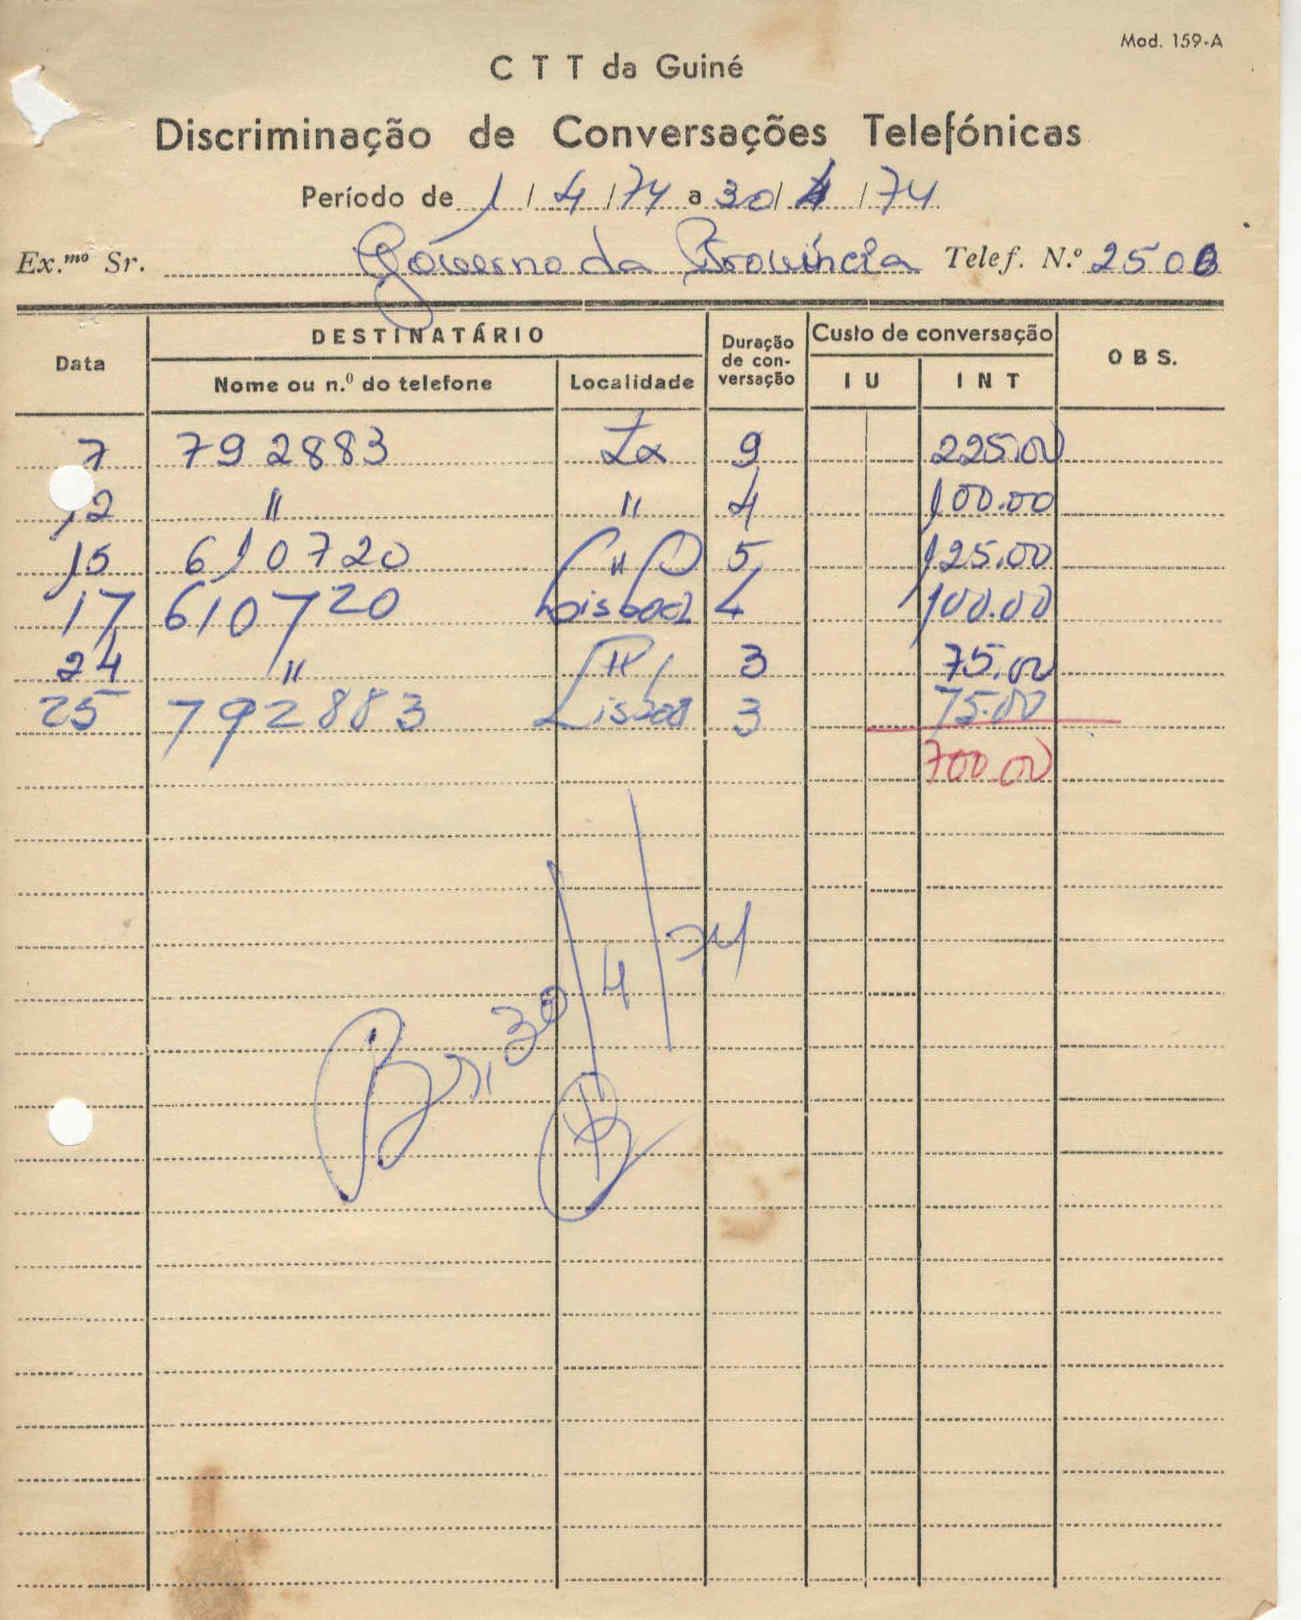 Mod. 159-A
C T T da Guiné
Discriminação de Conversações Telefónicas
Período de 1 / 4 / 74 a 30 / 4 / 74
Ex.mo Sr. Governo da Província Telef. N.º 2500
Data DESTINATÁRIO Duração de conversação Custo de conversação O B S.
Nome ou n.º do telefone Localidade I U I N T
7 792883 Lx 9 225.00
12 " " 4 100.00
15 610720 " 5 125.00
17 610720 Lisboa 4 100.00
24 " " 3 75.00
25 792883 Lisboa 3 75.00
700.00
30/4/74